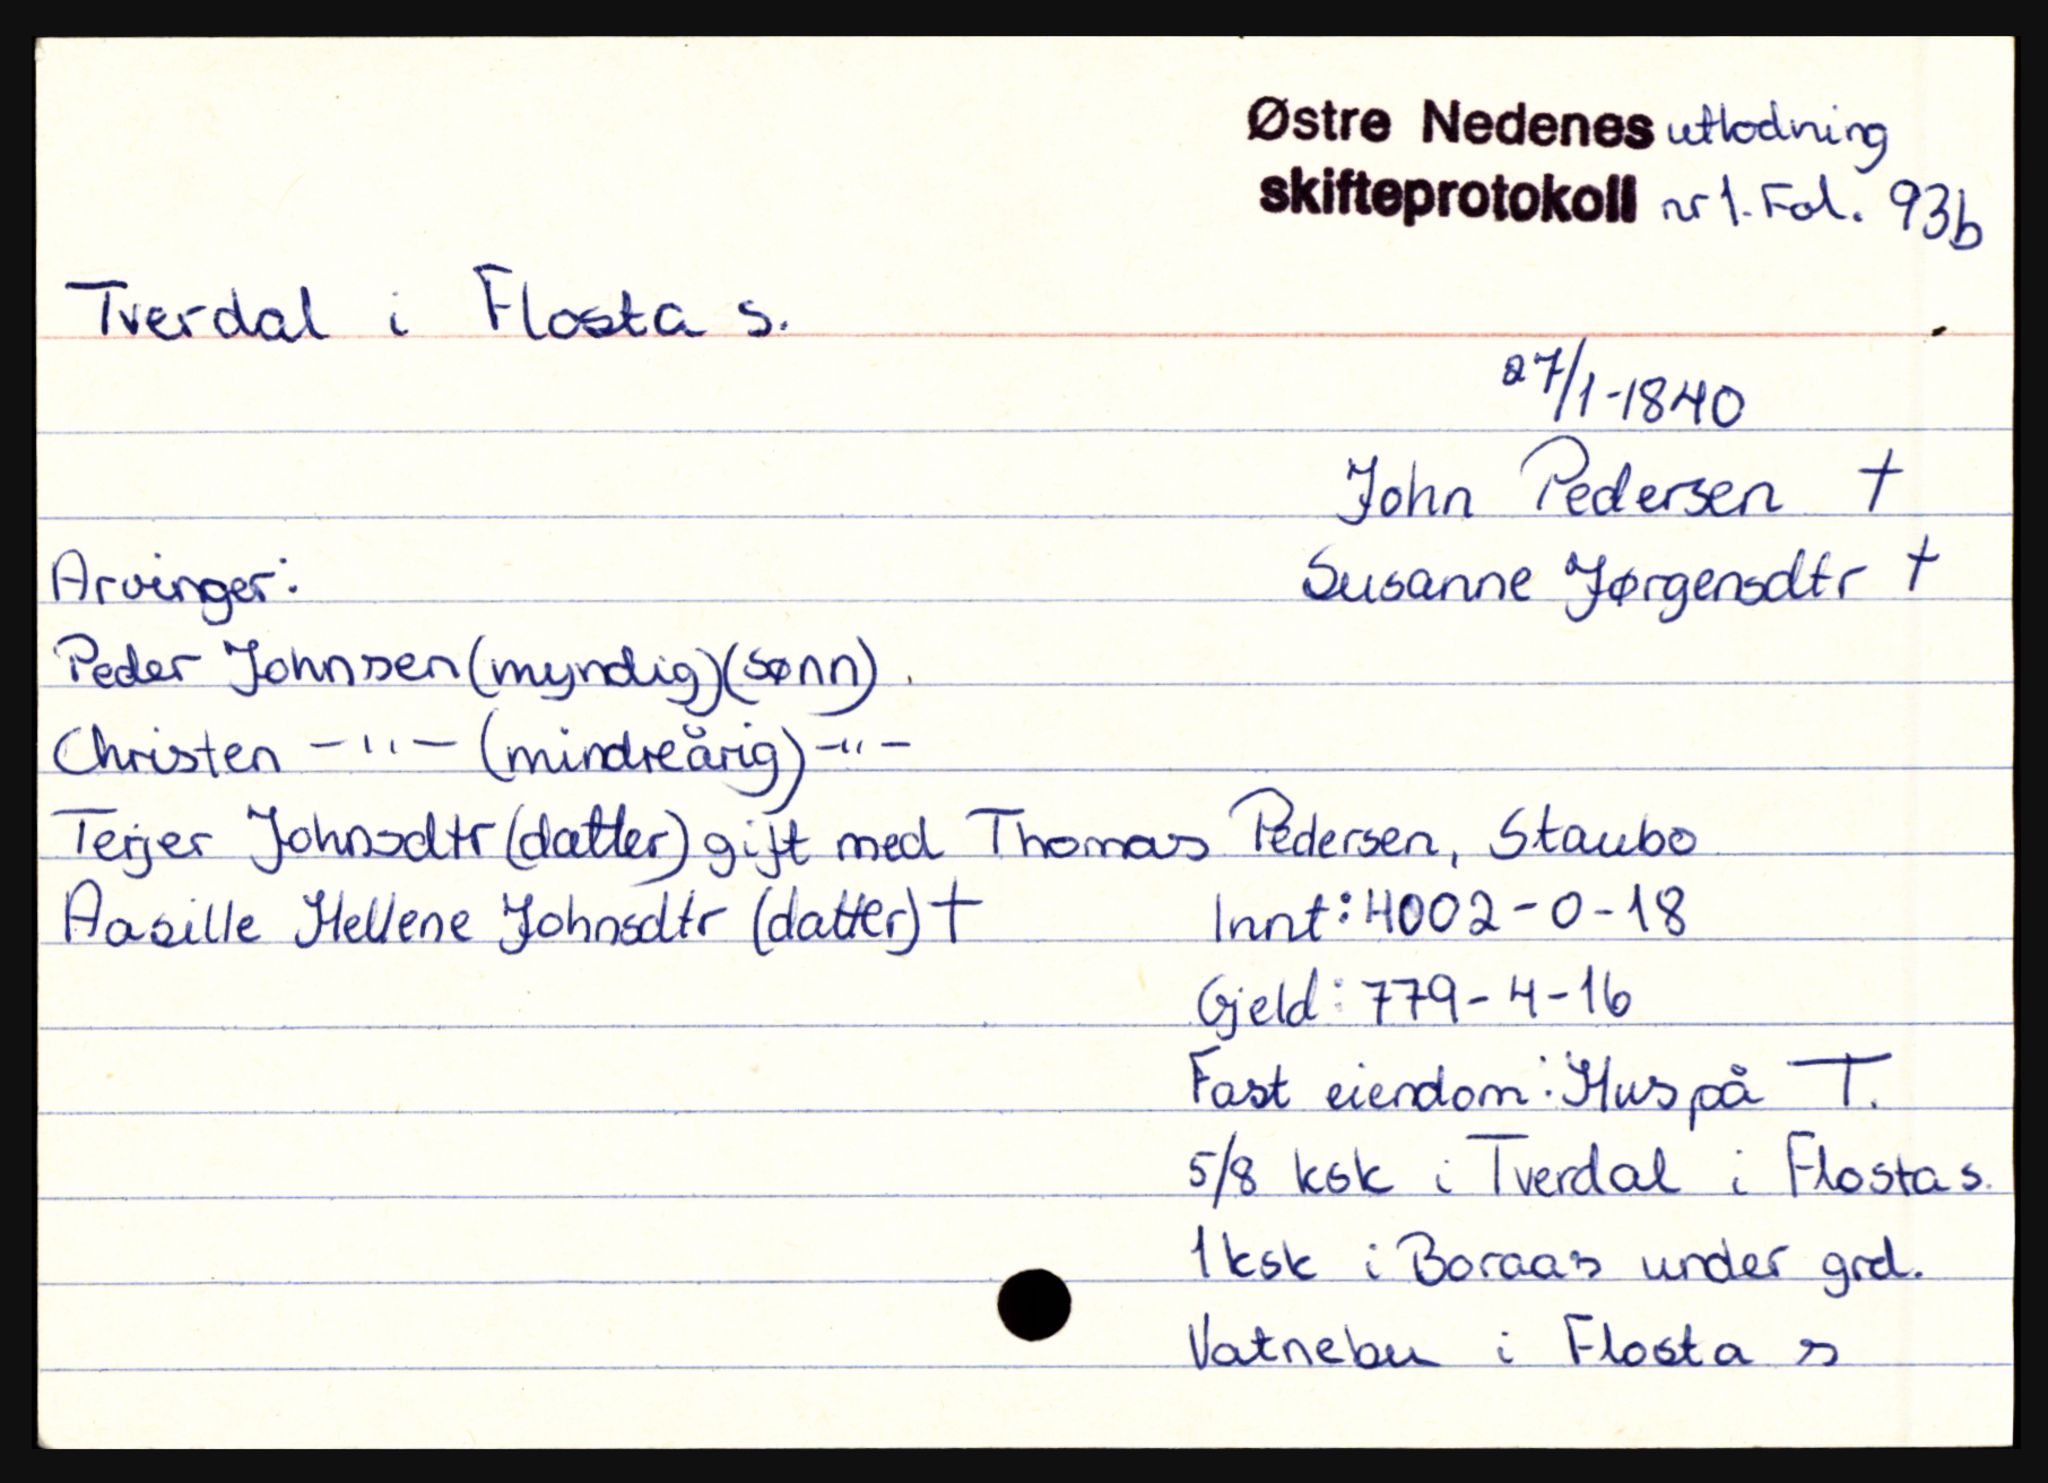 Østre Nedenes utlodning
skifteprotokoll nr 1. Fol. 93b
Tverdal i Flosta s.
27/1-1840
John Pedersen †
Susanne Jørgensdtr †
Arvinger:
Peder Johnsen (myndig) (sønn).
Christen -"- (mindreårig) -"-
Terjer Johnsdtr (datter) gift med Thomas Pedersen, Staubo
Aasille Hellene Johnsdtr (datter) †
Innt: 4002-0-18
Gjeld: 779-4-16
Fast eiendom: Hus på T.
5/8 ksk i Tverdal i Flosta s.
1 ksk i Boraas under grd.
Vatnebu i Flosta s